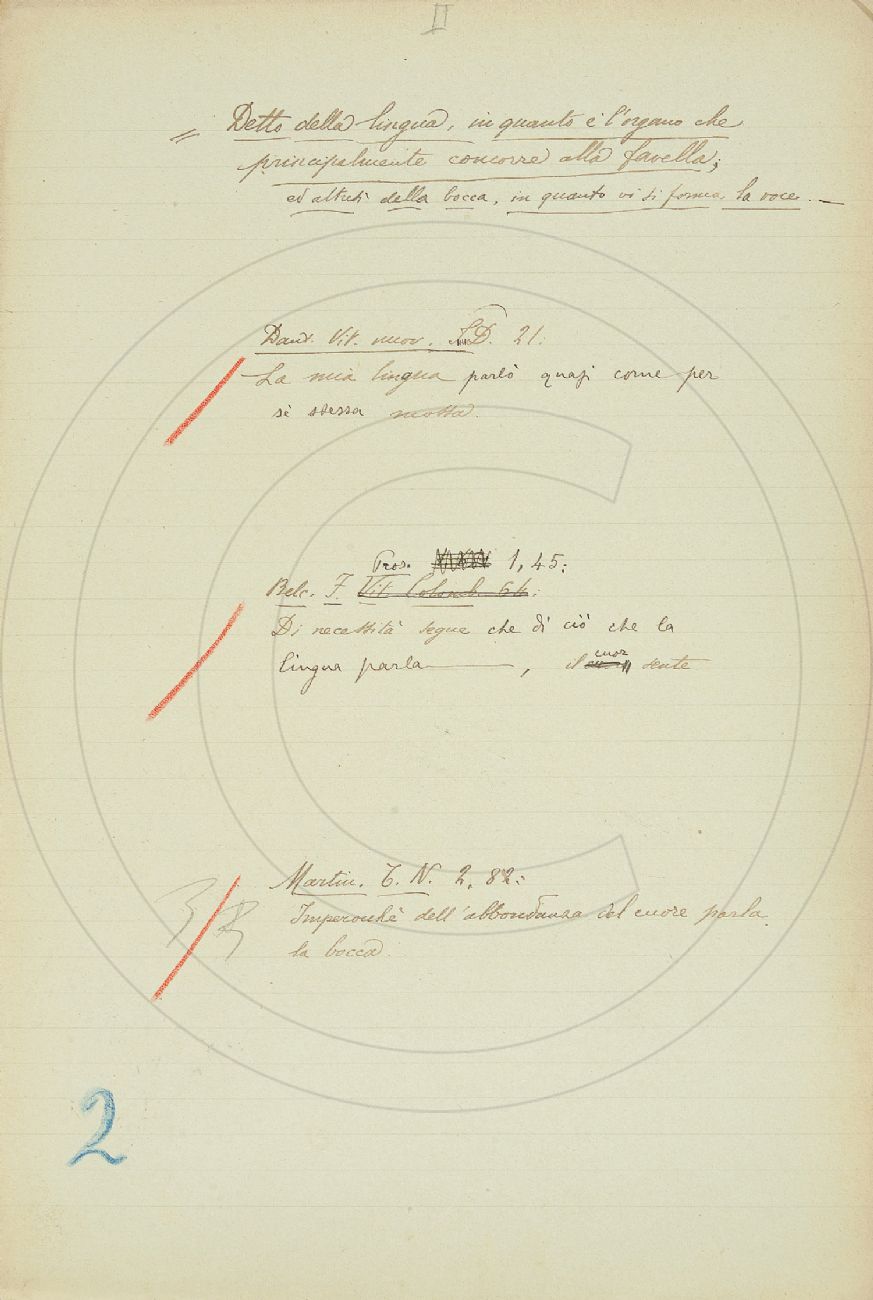 II
= Detto della lingua, in quanto è l'organo che
principalmente concorre alla favella;
ed altresì della bocca, in quanto vi si forma la voce. —
Dant. Vit. nuov. D. 21:
La mia lingua parlò quasi come per
sè stessa mossa.
Pros. 1, 45:
Belc. F. Vit. Colomb. 64:
Di necessità segue che di ciò che la
lingua parla —, il cuor sente
Martin. T. N. 2, 82:
Imperocchè dell'abbondanza del cuore parla
la bocca.
2